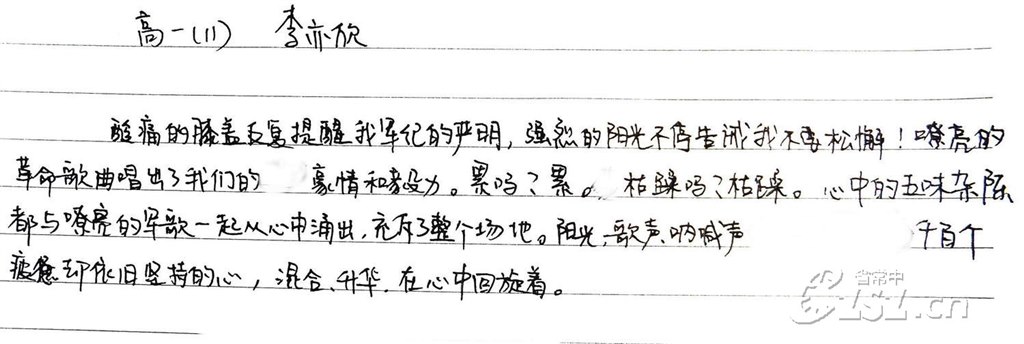 高一(11) 李亦欣
酸痛的膝盖反复提醒我军纪的严明，强烈的阳光不停告诫我不要松懈！嘹亮的
革命歌曲唱出了我们的 豪情和毅力。累吗？累。枯躁吗？枯躁。心中的五味杂陈
都与嘹亮的军歌一起从心中涌出，充斥了整个场地。阳光、歌声、呐喊声 千百个
疲惫却依旧坚持的心，混合、升华、在心中回旋着。
省常中
1s1.cn